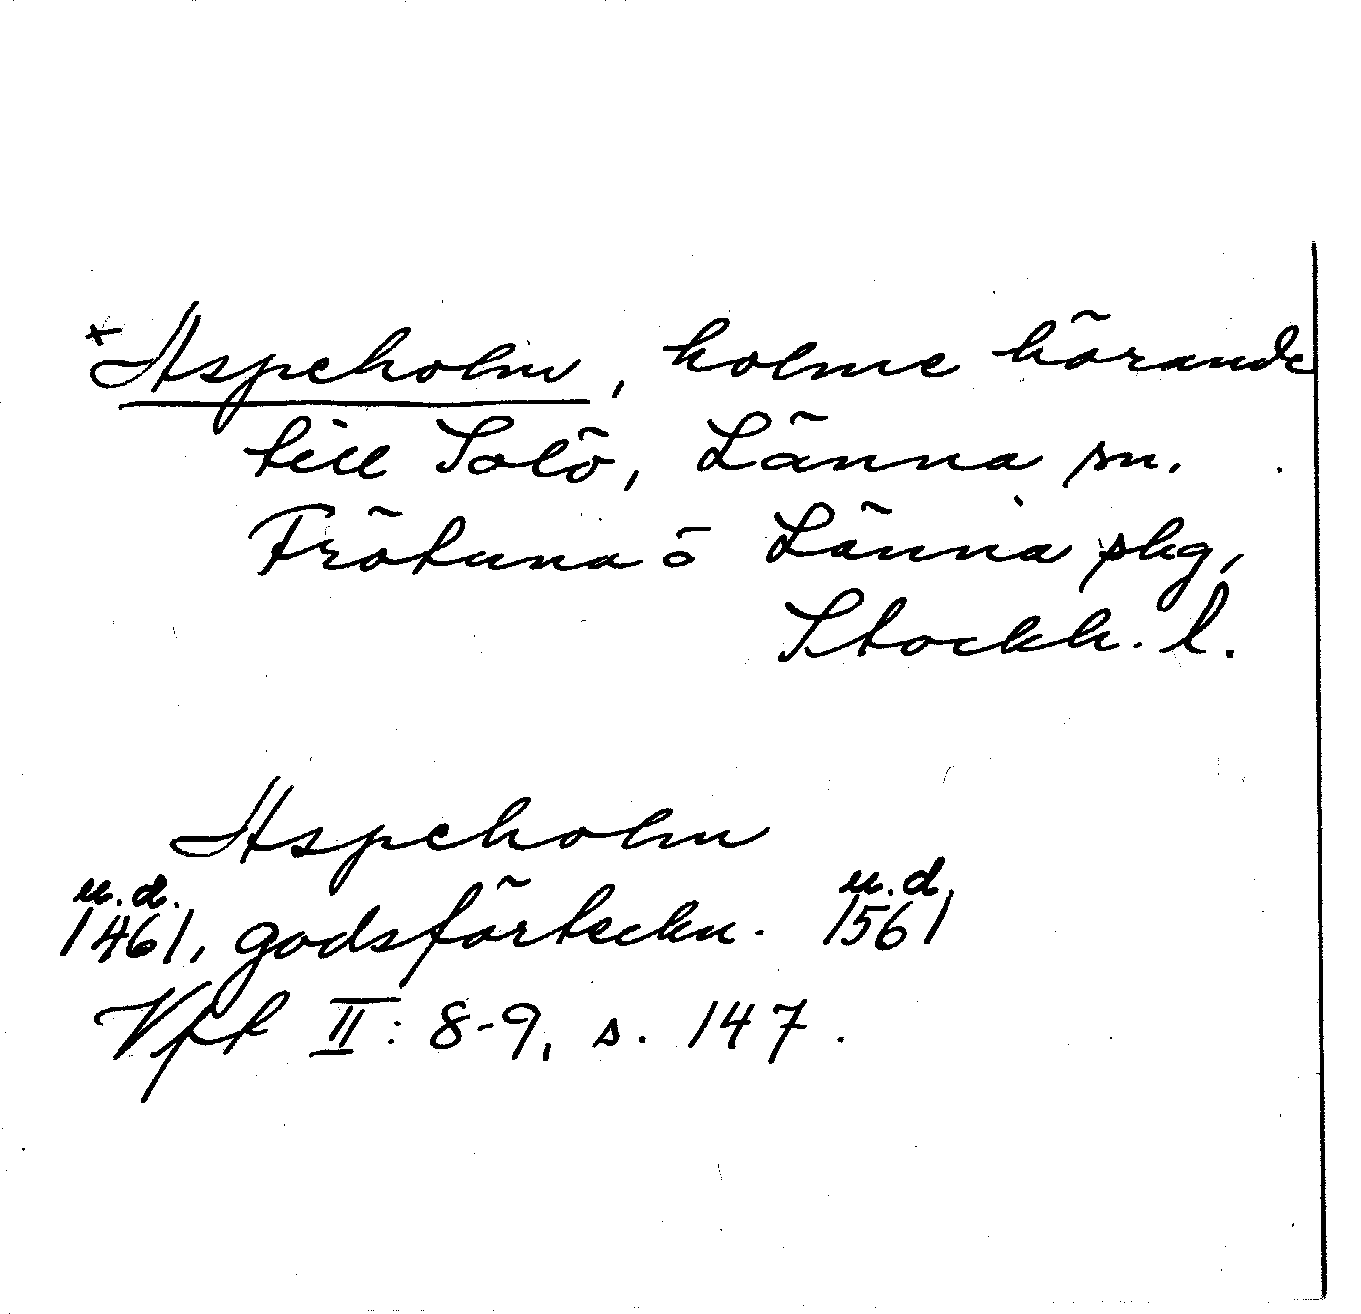 +Aspeholm, holme hörande
till Solö, Länna sn.
Frötuna o Länna skg,
Stockh. l.
Aspeholm
u.d. u.d.
1461, godsförteckn. 1561
Vfl II: 8-9, s. 147.